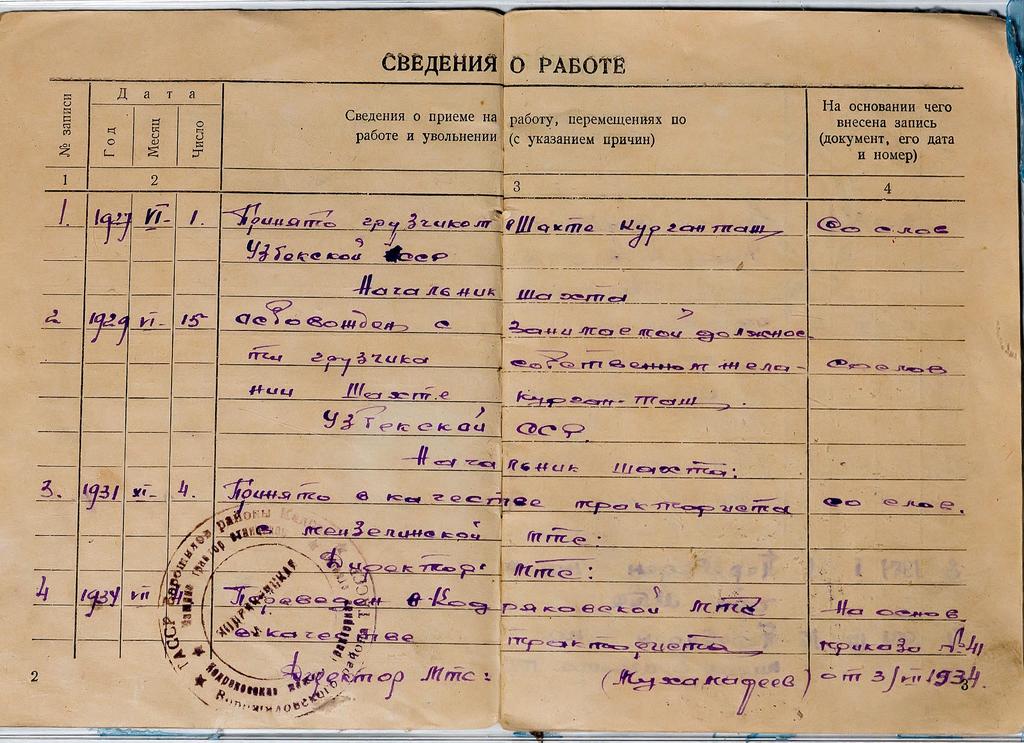 СВЕДЕНИЯ О РАБОТЕ
№ записи
Дата
Год
Месяц
Число
Сведения о приеме на работу, перемещениях по
работе и увольнении (с указанием причин)
На основании чего
внесена запись
(документ, его дата
и номер)
1 2 3 4
1. 1927 VI- 1. Принято грузчиком Шахте Курганташ Со слов
Узбекской ССР
Начальник шахта
2 1929 VI- 15 асвобожден с занимаемой должнос
ти грузчика собственном жела- со слов
нии Шахте Курган-Таш.
Узбекской ССР.
Начальник шахта:
3. 1931 XI- 4. Принято в качестве тракториста со слов.
в мензелинской мтс:
Директор: мтс:
4 1934 VII Переведен в Кадряковской мтс На основ.
в качестве тракториста приказа №41
Директор Мтс: (Мухамадеев) от 3/VII 1934.
2
3
ТАССР